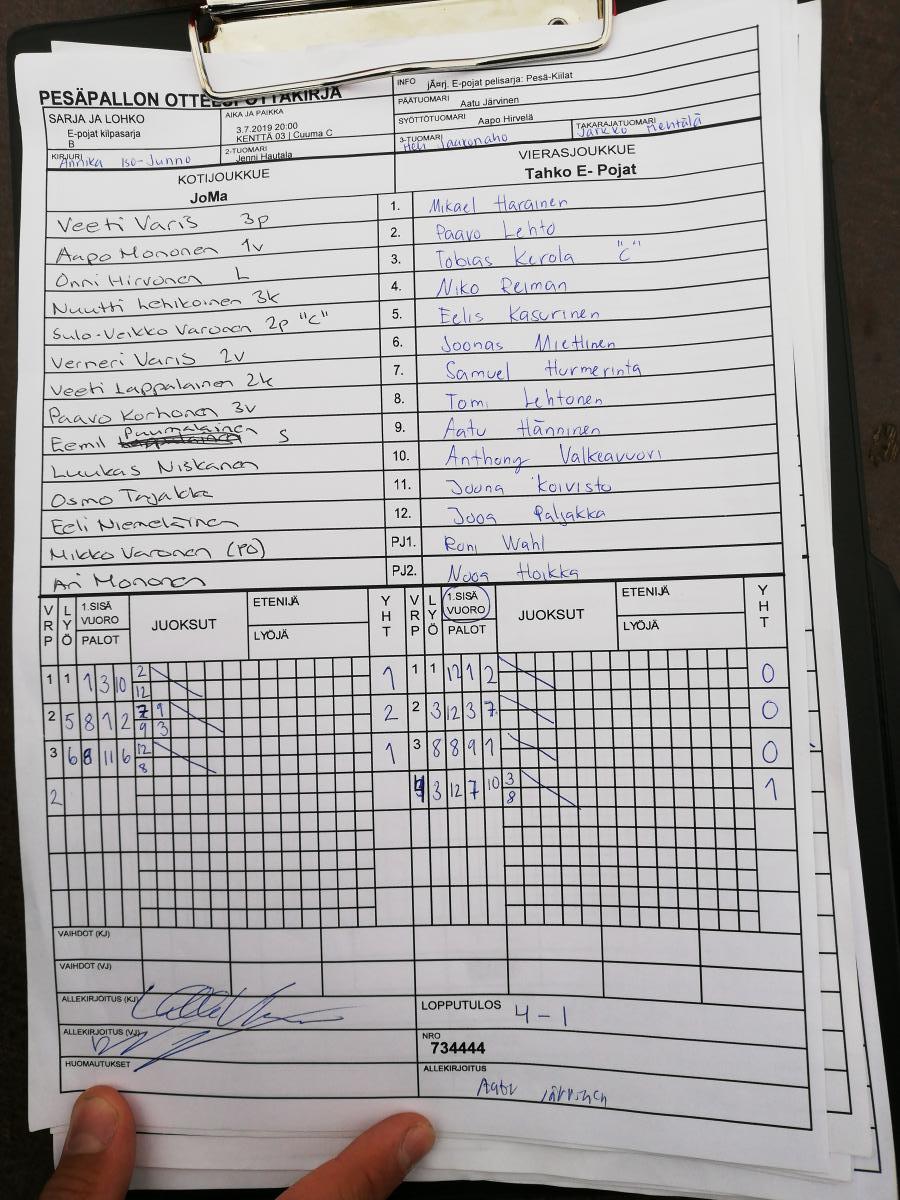 PESÄPALLON OTTELUPÖYTÄKIRJA
SARJA JA LOHKO
E-pojat kilpasarja
B
AIKA JA PAIKKA
3.7.2019 20:00
KENTTÄ 03 | Cuuma C
INFO jÃ¤rj. E-pojat pelisarja: Pesä-Kiilat
PÄÄTUOMARI Aatu Järvinen
SYÖTTÖTUOMARI Aapo Hirvelä
KIRJURI Annika Iso-Junno
2-TUOMARI Jenni Hautala
3-TUOMARI Heli Jaakonaho
TAKARAJATUOMARI Jarkko Mentälä
KOTIJOUKKUE
JoMa
VIERASJOUKKUE
Tahko E- Pojat
Veeti Varis 3p 1. Mikael Harainen
Aapo Mononen 1v 2. Paavo Lehto
Onni Hirvonen L 3. Tobias Kerola "C"
Nuutti Lehikoinen 3k 4. Niko Reiman
Sulo-Veikko Varonen 2p "C" 5. Eelis Kasurinen
Verneri Varis 2v 6. Joonas Miettinen
Veeti Lappalainen 2k 7. Samuel Hurmerinta
Paavo Korhonen 3v 8. Tomi Lehtonen
Eemil Puumalainen S 9. Aatu Hänninen
Luukas Niskanen 10. Anthony Valkeavuori
Osmo Tajakka 11. Joona Koivisto
Eeli Niemeläinen 12. Jooa Paljakka
Mikko Varonen (PO) PJ1. Roni Wahl
Ari Mononen PJ2. Nooa Hoikka
VRP LYÖ 1.SISÄ VUORO PALOT JUOKSUT ETENIJÄ LYÖJÄ YHT VRP LYÖ 1.SISÄ VUORO PALOT JUOKSUT ETENIJÄ LYÖJÄ YHT
1 1 1 3 10 2 12 1 1 1 12 1 2 0
2 5 8 1 2 7 9 9 3 2 2 3 12 3 7 0
3 6 8 11 6 12 8 1 3 8 8 9 1 0
2 4 3 12 7 10 3 8 1
VAIHDOT (KJ)
VAIHDOT (VJ)
ALLEKIRJOITUS (KJ)
LOPPUTULOS 4-1
ALLEKIRJOITUS (VJ)
NRO
734444
HUOMAUTUKSET
ALLEKIRJOITUS
Aatu Järvinen